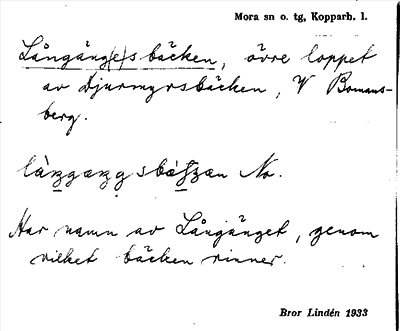 Mora sn o. tg, Kopparb. l.
Långäng(e)sbäcken, övre loppet
av Djurmyrsbäcken, V Bomans-
berg.
No.
Har namn av Långänget, genom
vilket bäcken rinner.
Bror Lindén 1933